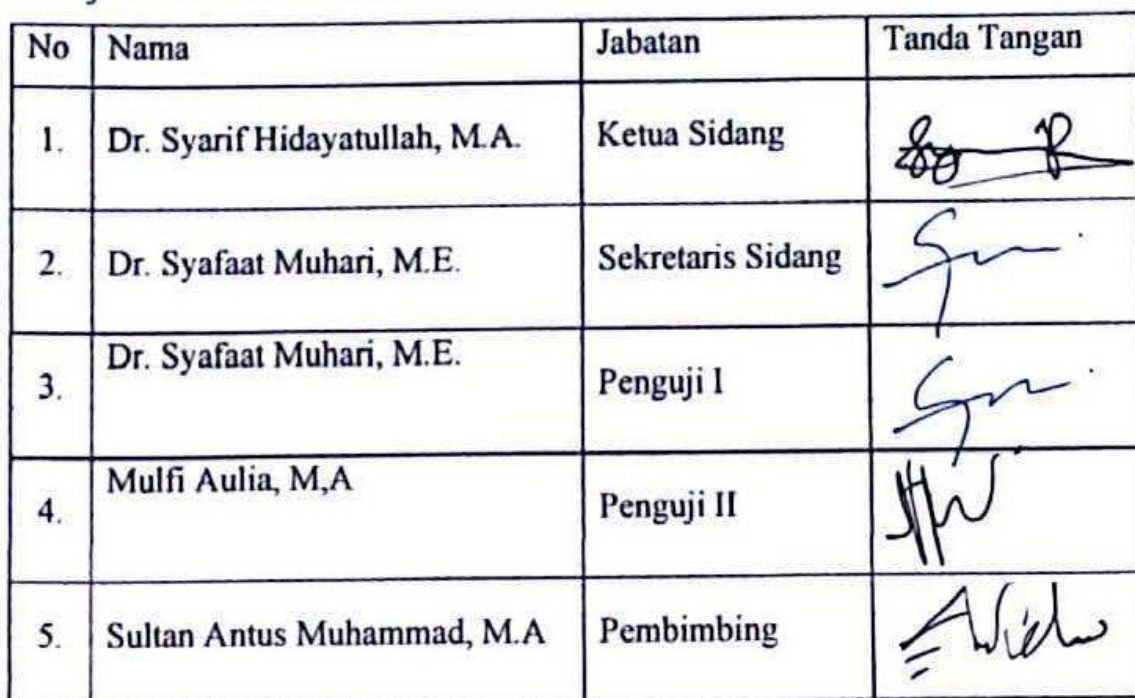 No Nama Jabatan Tanda Tangan
1. Dr. Syarif Hidayatullah, M.A. Ketua Sidang
2. Dr. Syafaat Muhari, M.E. Sekretaris Sidang
3. Dr. Syafaat Muhari, M.E. Penguji I
4. Mulfi Aulia, M,A Penguji II
5. Sultan Antus Muhammad, M.A Pembimbing